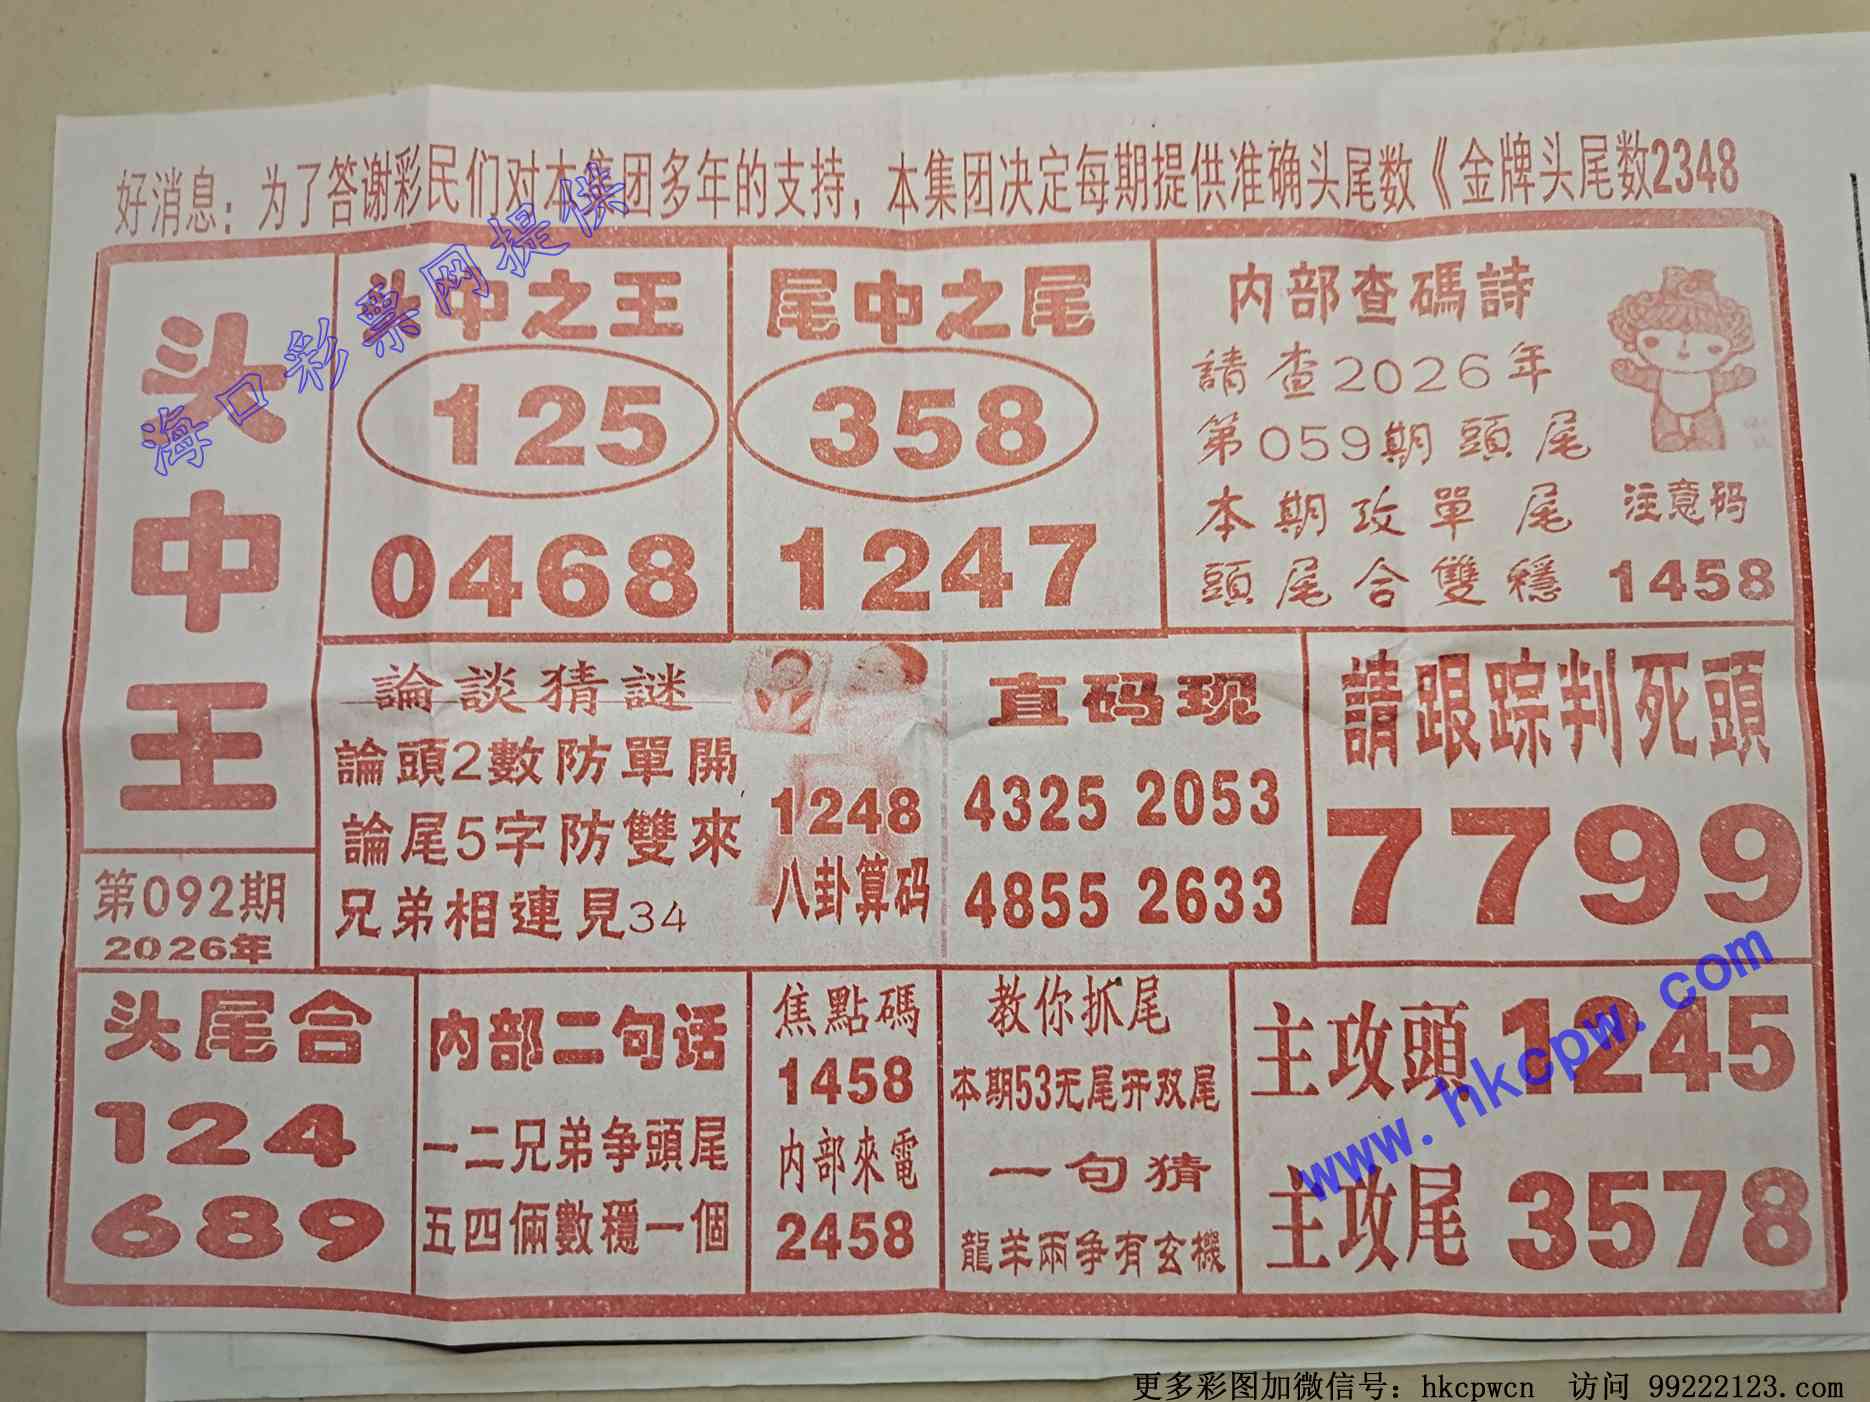 好消息：为了答谢彩民们对本集团多年的支持，本集团决定每期提供准确头尾数《金牌头尾数2348
海口彩票网提供
头中王
第092期
2026年
头中之王
125
0468
尾中之尾
358
1247
内部查碼詩
請查2026年
第059期頭尾
本期攻單尾
頭尾合雙穩
注意码
1458
論談猜謎
論頭2數防單開
論尾5字防雙來
兄弟相連見34
1248
八卦算码
直码现
4325 2053
4855 2633
請跟踪判死頭
7799
头尾合
124
689
内部二句话
一二兄弟争頭尾
五四倆數穩一個
焦點碼
1458
内部來電
2458
教你抓尾
本期53无尾开双尾
一句猜
龍羊兩争有玄機
主攻頭 1245
主攻尾 3578
www.hkcpw.com
更多彩图加微信号：hkcpwcn 访问 99222123.com